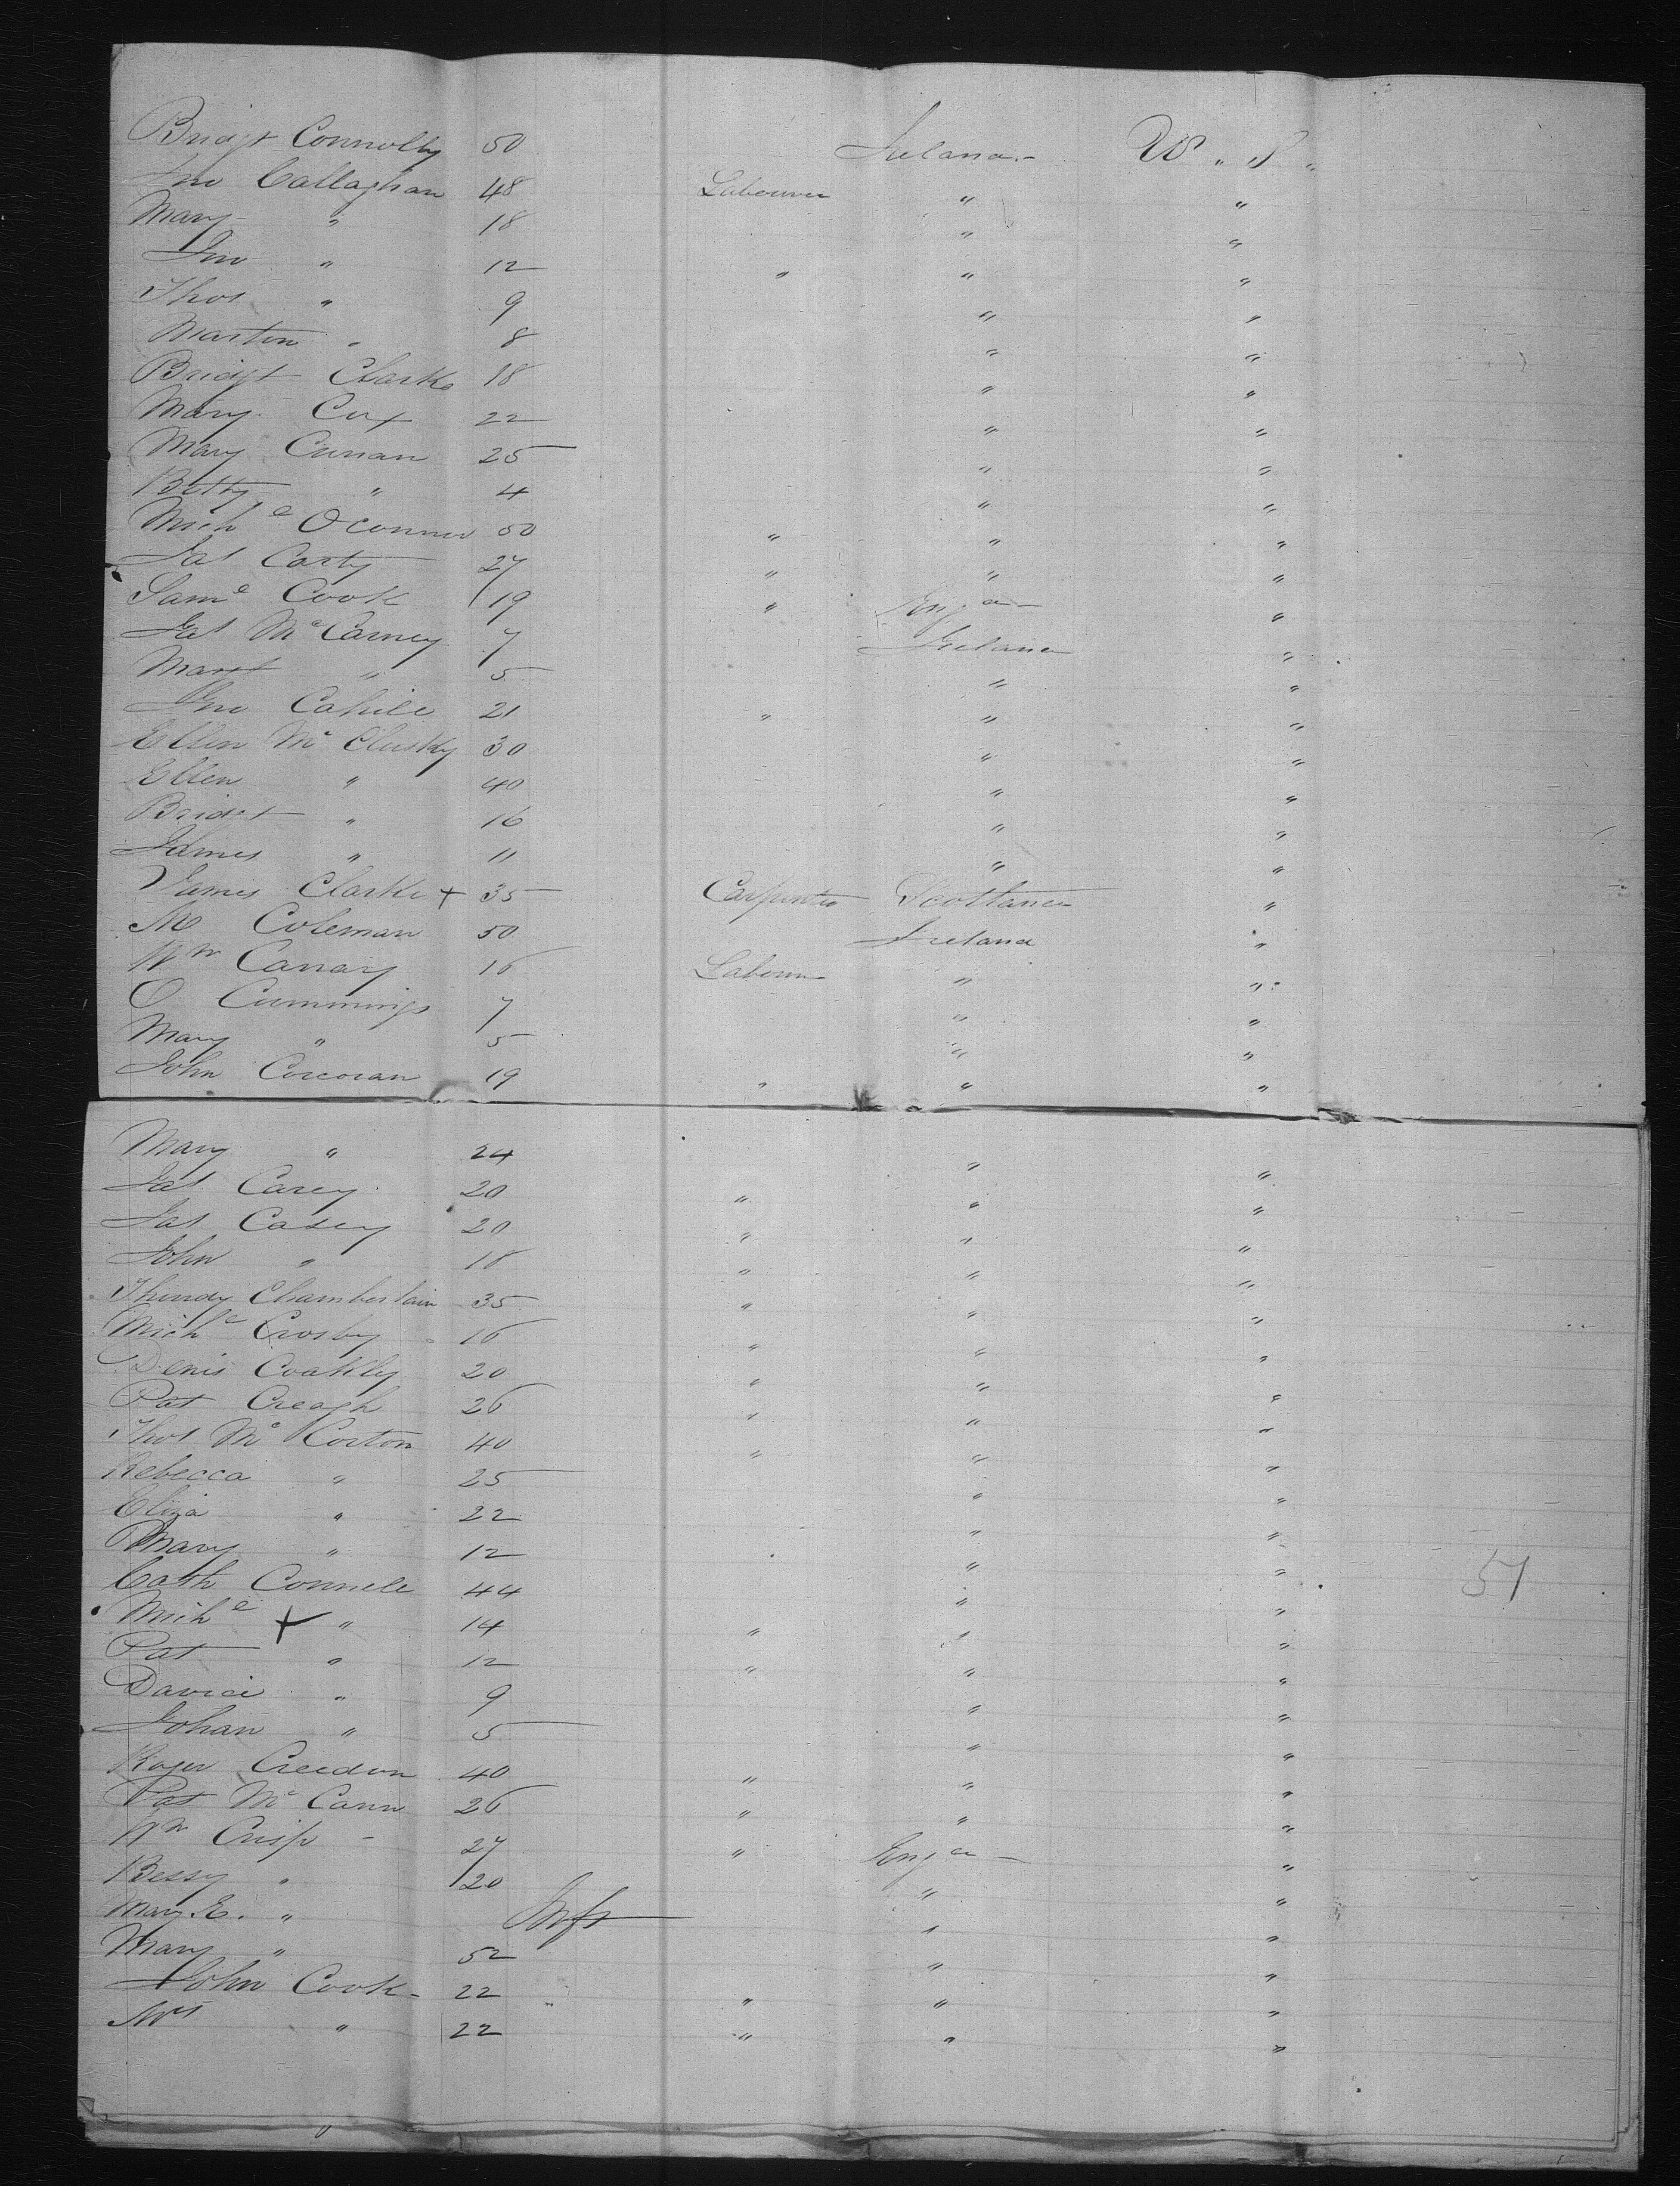 Bridgt Connolly 50 Ireland U. S.
Jno Callaghan 48 Labourer " "
Mary " 18 " "
Jno " 12 " " "
Thos " 9 " "
Martin " 8 " "
Bridgt Clarke 18 " "
Mary Cox 22 " "
Mary Curran 25 " "
Betty " 4 " "
Michl O'Connor 50 " " "
Jas Carty 27 " " "
Saml Cook 19 " Engd "
Jas McCarney 7 Ireland "
Margt " 5 " "
Jno Cahill 21 " " "
Ellen McClusky 30 " "
Ellen " 40 " "
Bridgt " 16 " "
James " 11 " "
James Clarke + 35 Carpenter Scotland "
M Coleman 50 Ireland "
Wm Canary 16 Labourer " "
O Cummings 7 " "
Mary " 5 " "
John Corcoran 19 " " "
Mary " 24 " "
Jas Carey 20 " " "
Jas Casey 20 " " "
John " 18 " " "
Chamberlain 35 " " "
Michl Crosby 16 " " "
Denis Coakly 20 " " "
Pat Creagh 26 " " "
Thos McCorton 40 " " "
Rebecca " 25 " "
Eliza " 22 " "
Mary " 12 " "
Cath Connell 44 " "
Michl + " 14 " " "
Pat " 12 " " "
David " 9 " "
Johan " 5 " "
Roger Creedon 40 " " "
Pat McCann 26 " " "
Wm Crisp 27 " Engd "
Bessy " 20 " "
Mary E. " Inft " "
Mary " 52 " "
John Cook 22 " " "
Mrs " 22 " " "
51